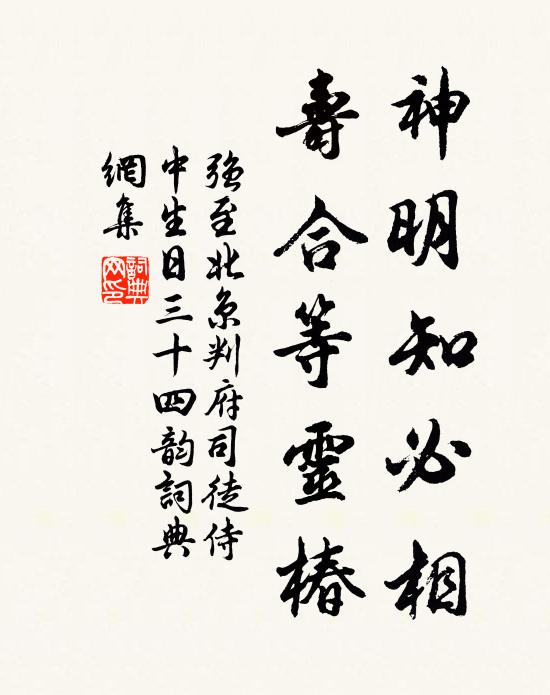 神明知必相
壽合等靈椿
強至北京判府司徒侍
中生日三十四韵詞典
網集
詞典
网印